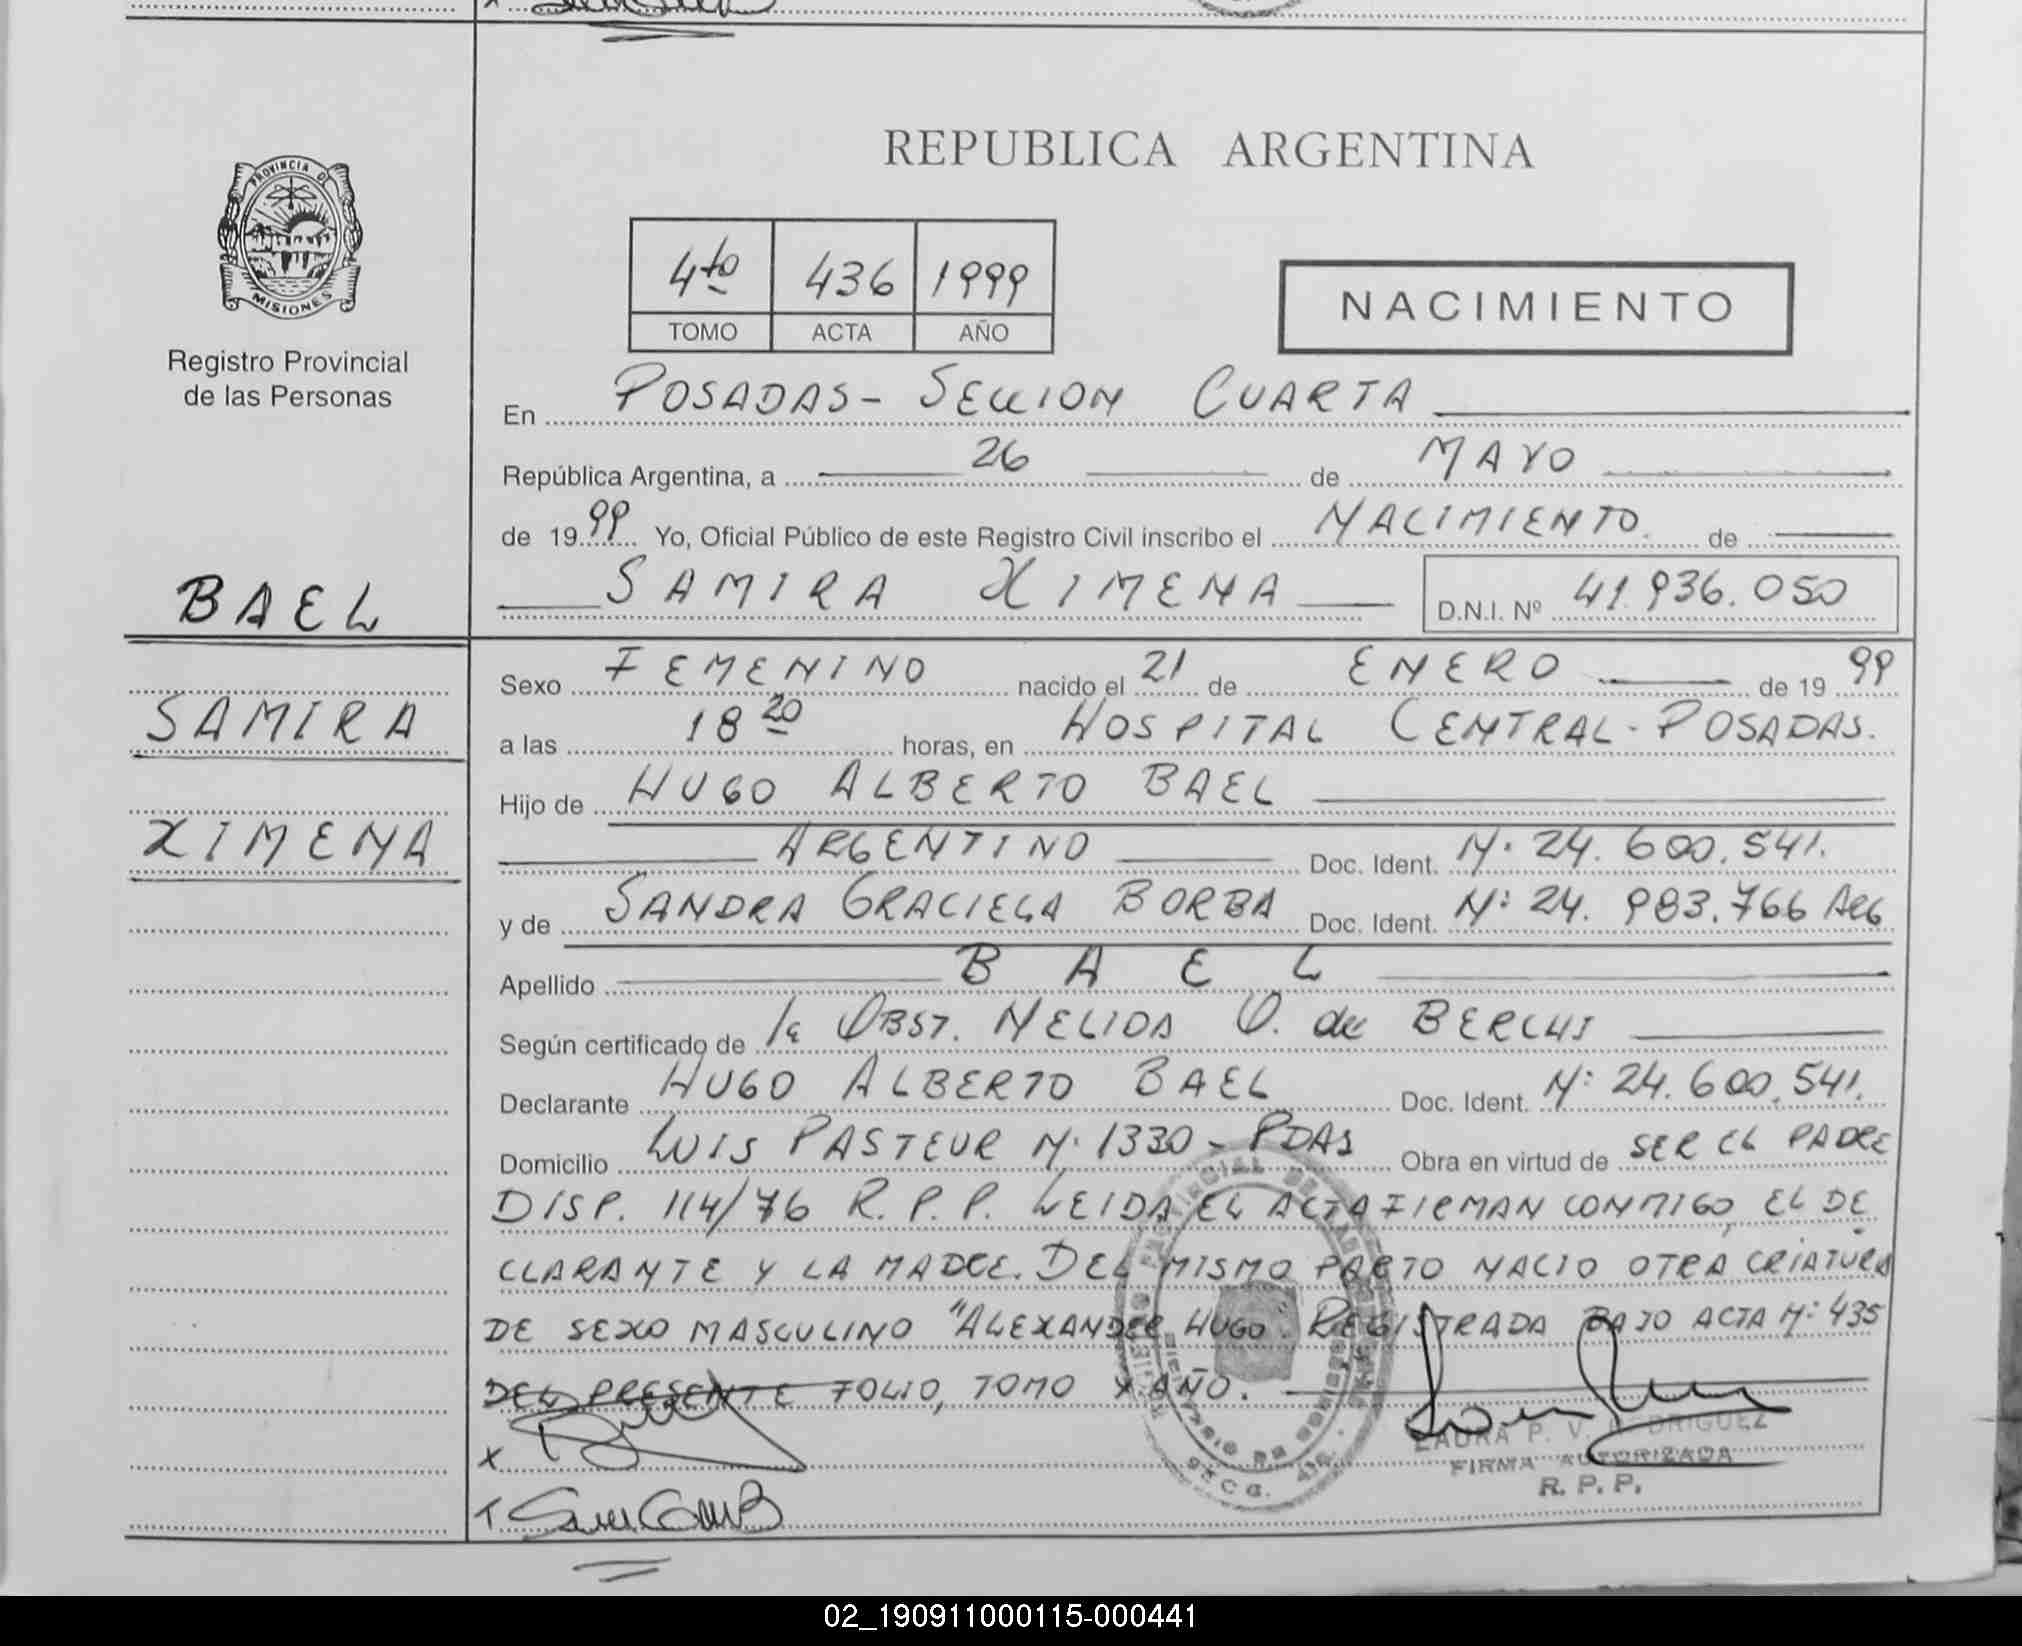 REPUBLICA ARGENTINA
PROVINCIA DE
MISIONES
Registro Provincial
de las Personas
4to 436 1999
TOMO ACTA AÑO
NACIMIENTO
En POSADAS - SECCION CUARTA
República Argentina, a 26 de MAYO
de 1999 Yo, Oficial Público de este Registro Civil inscribo el NACIMIENTO de
SAMIRA XIMENA D.N.I. Nº 41.936.050
BAEL
SAMIRA
XIMENA
Sexo FEMENINO nacido el 21 de ENERO de 1999
a las 18 20 horas, en HOSPITAL CENTRAL - POSADAS.
Hijo de HUGO ALBERTO BAEL
ARGENTINO Doc. Ident. Nº 24.600.541.
y de SANDRA GRACIELA BORBA Doc. Ident. Nº 24.983.766 ARG
Apellido BAEL
Según certificado de la OBST. NELIDA O. de
Declarante HUGO ALBERTO BAEL Doc. Ident. Nº 24.600.541.
Domicilio LUIS PASTEUR Nº 1330 - PDAS Obra en virtud de SER EL PADRE
DISP. 114/76 R.P.P. LEIDA EL ACTA FIRMAN CONMIGO, EL DE
CLARANTE Y LA MADRE. DEL MISMO PARTO NACIO OTRA CRIATURA
DE SEXO MASCULINO "ALEXANDER HUGO. REGISTRADA BAJO ACTA Nº 435
DEL PRESENTE FOLIO, TOMO Y AÑO.
LAURA P. V. RODRIGUEZ
FIRMA AUTORIZADA
R. P. P.
02_190911000115-000441